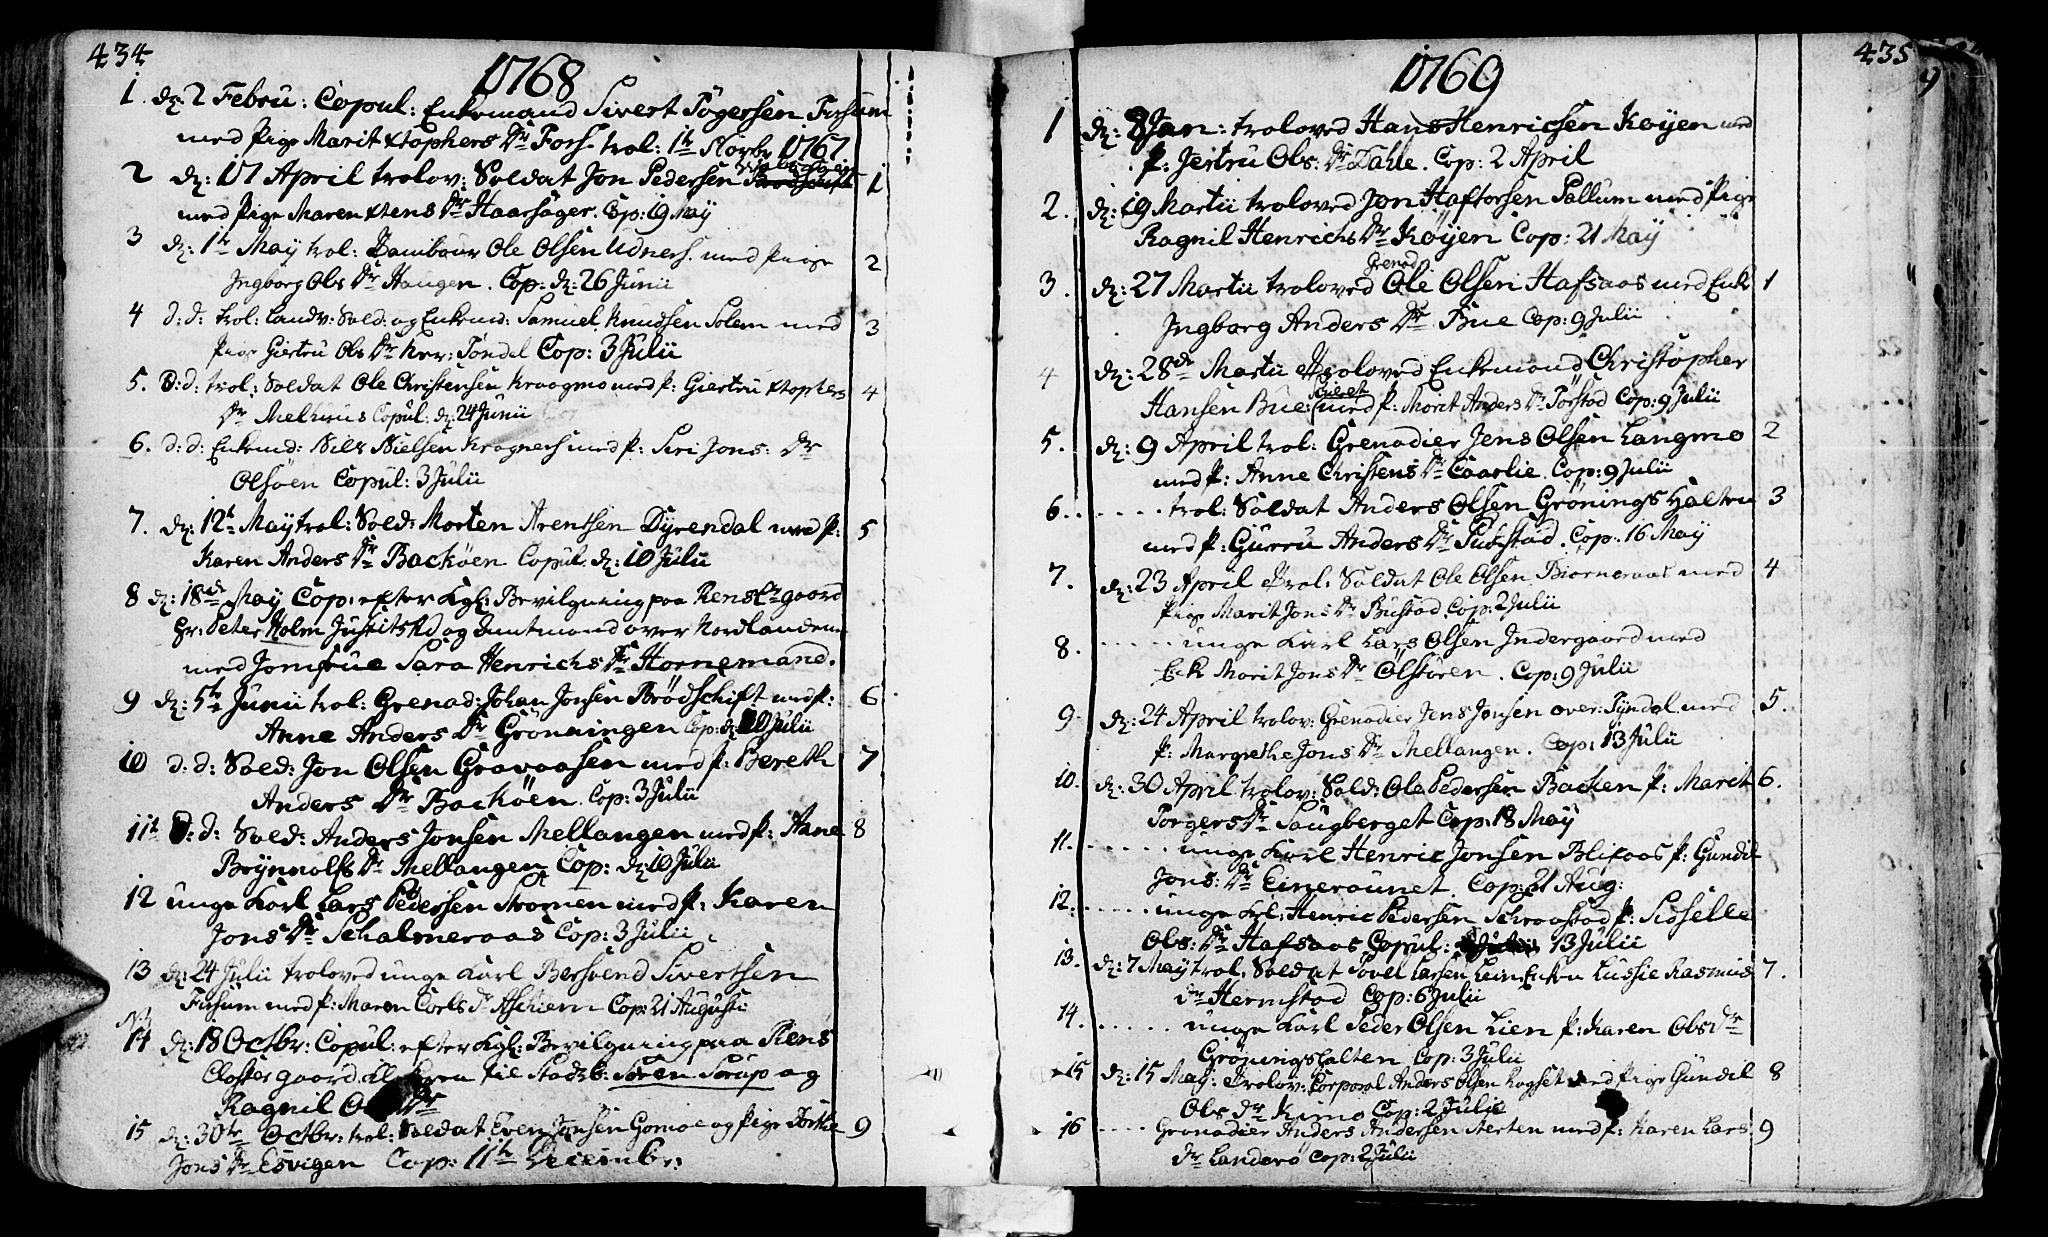 434
1768
1 dz: 2 Febru: Copul: Enkemand Sivert Tögersen Forsum
med Pige Marit Xtophers Dr Fors- trol: 1te Novbr 1767
2 dz: 17 April trolov: Soldat Jon Pedersen 1
med Pige Maren Xtens Dr Haarsager. Cop: 19 May
3 dz: 1te May trol: Tambour Ole Olsen Udners. med Pige 2
Ingborg Obs Dr Haugen. Cop: dz: 26 Junii
4 d: d: trol: Landv: Sold: og Enkemd: Samuel Knudsen Solem med 3
Pige Giertru Obs Dr Tondel Cop: 3 Julii
5. d: d: trol: Soldat Ole Christensen Kraagmo med P: Giertru Xtophers 4
Dr Melhuus Copul: dz: 24 Junii
6. d: d: Enkemd: Nils Nielsen Krogners med P: Siri Jons: Dr
Olsöen Copul: 3 Julii
7. dz: 12te May trol: Sold: Morten Arentsen Dyrendal med P: 5
Karen Anders Dr Backöen Copul. dz: 10 Julii
8 dz: 18de May Cop: efter Kgl: Bevilgning paa Rens Clr gaard
Hr: Peter Holm Justitsrd og Amtmand over Nordlandene
med Jomfrue Sara Henrichs Dr Hornemand.
9 dz: 5te Junii trol: Grenad: Johan Jonsen Brödschift med P: 6
Anne Anders Dr Gronningen Cop: dz 10 Julii
10 d: d: Sold: Jon Olsen Gravaasen med P: Bereth 7
Anders Dr Backöen. Cop: 3 Julii
11 d: d: Sold: Anders Jonsen Mellangen med P: Anne 8
Brÿnnolfs Dr Mellangen Cop: dz 10 Julii
12 unge Karl Lars Pedersen Stromen med P: Karen
Jons Dr Schalmeraas Cop: 3 Julii
13 dz: 24 Julii troloved unge Karl Bersvend Sivertsen
Forsum med P: Maren Corls Dr Aschiem Cop: 21 Augusti
14 dz: 18 Octbr: Copul: efter Kgl: Bevilgning paa Rens
Closter gaard til Soren Sorup og
Ragnil Dr
15 dz: 30te Octbr: trol: Soldat Even Jonsen Gomoe og Pige Dorthe 9
Jons Dr Esvigen Cop: 11te Decembr:
435
1769
1 dz: 8 Jan: troloved Hans Henrichsen Koyen med
P: Jertru Obs: Dr Dahle. Cop: 2 April
2. dz: 19 Martii troloved Jon Haftorsen Pallum med Pige
Ragnil Henrichs Dr Koyen Cop: 21 May
Grenad
3. dz: 27 Martii troloved Ole Olsen Hafsaas med Enk 1
Ingborg Anders Dr Bue Cop: 9 Julii
4 dz: 28de Martii troloved Enkemand Christopher
Hansen Bue: med P: Marit Anders Dr Törstad Cop: 9 Julii
5. dz: 9 April trol: Grenadier Jens Olsen Langmo 2
med P: Anne Christens Dr Caarlie. Cop: 9 Julii
6. . . . . . trol: Soldat Anders Olsen Grönings Halten 3
med P: Gurru Anders Dr Puustad. Cop: 16 May
7. dz: 23 April trol: Soldat Ole Olsen Biorneraas med 4
Pige Marit Jons Dr Bustad Cop: 2 Julii
8. . . . . . unge Karl Lars Olsen Indergaard med
Enk Marit Jons Dr Ölstören. Cop: 9 Julii
9. dz: 24 April trolov: Grenadier Jens Jonsen over: Tyndal med 5.
P: Margrethe Jons Dr Mellangen. Cop: 13 Julii
10. dz: 30 April trolov: Sold: Ole Pedersen Backen P: Marit 6.
Torgers Dr Saugberget Cop: 18 May
11. . . . . . unge Karl Henric Jonsen Blixaas P: Gundil
Jons: Dr Einerounet Cop: 21 Aug:
12. . . . . . unge Krl: Henric Pedersen Schroostad P: Sisselle
Obs: Dr Hafsaas Copul: 13 Julii
13. dz: 7 May trol: Soldat Tovel Larsen Leun Enken Lussie Rasmus 7.
Dr Hermstad Cop: 6 Julii
14. . . . . . unge Karl Peder Olsen Lien P: Karen Obs Dr
Gröningshalten Cop: 3 Julii
15 dz: 15 May: trolov: Corporal Anders Olsen Rogset med Pige Gundil 8
Obs Dr Kimo Cop: 2 Julii
16 . . . . Grenadier Anders Andersen Aerten med P: Karen Lars 9
Dr Landerö Cop: 2 Julii